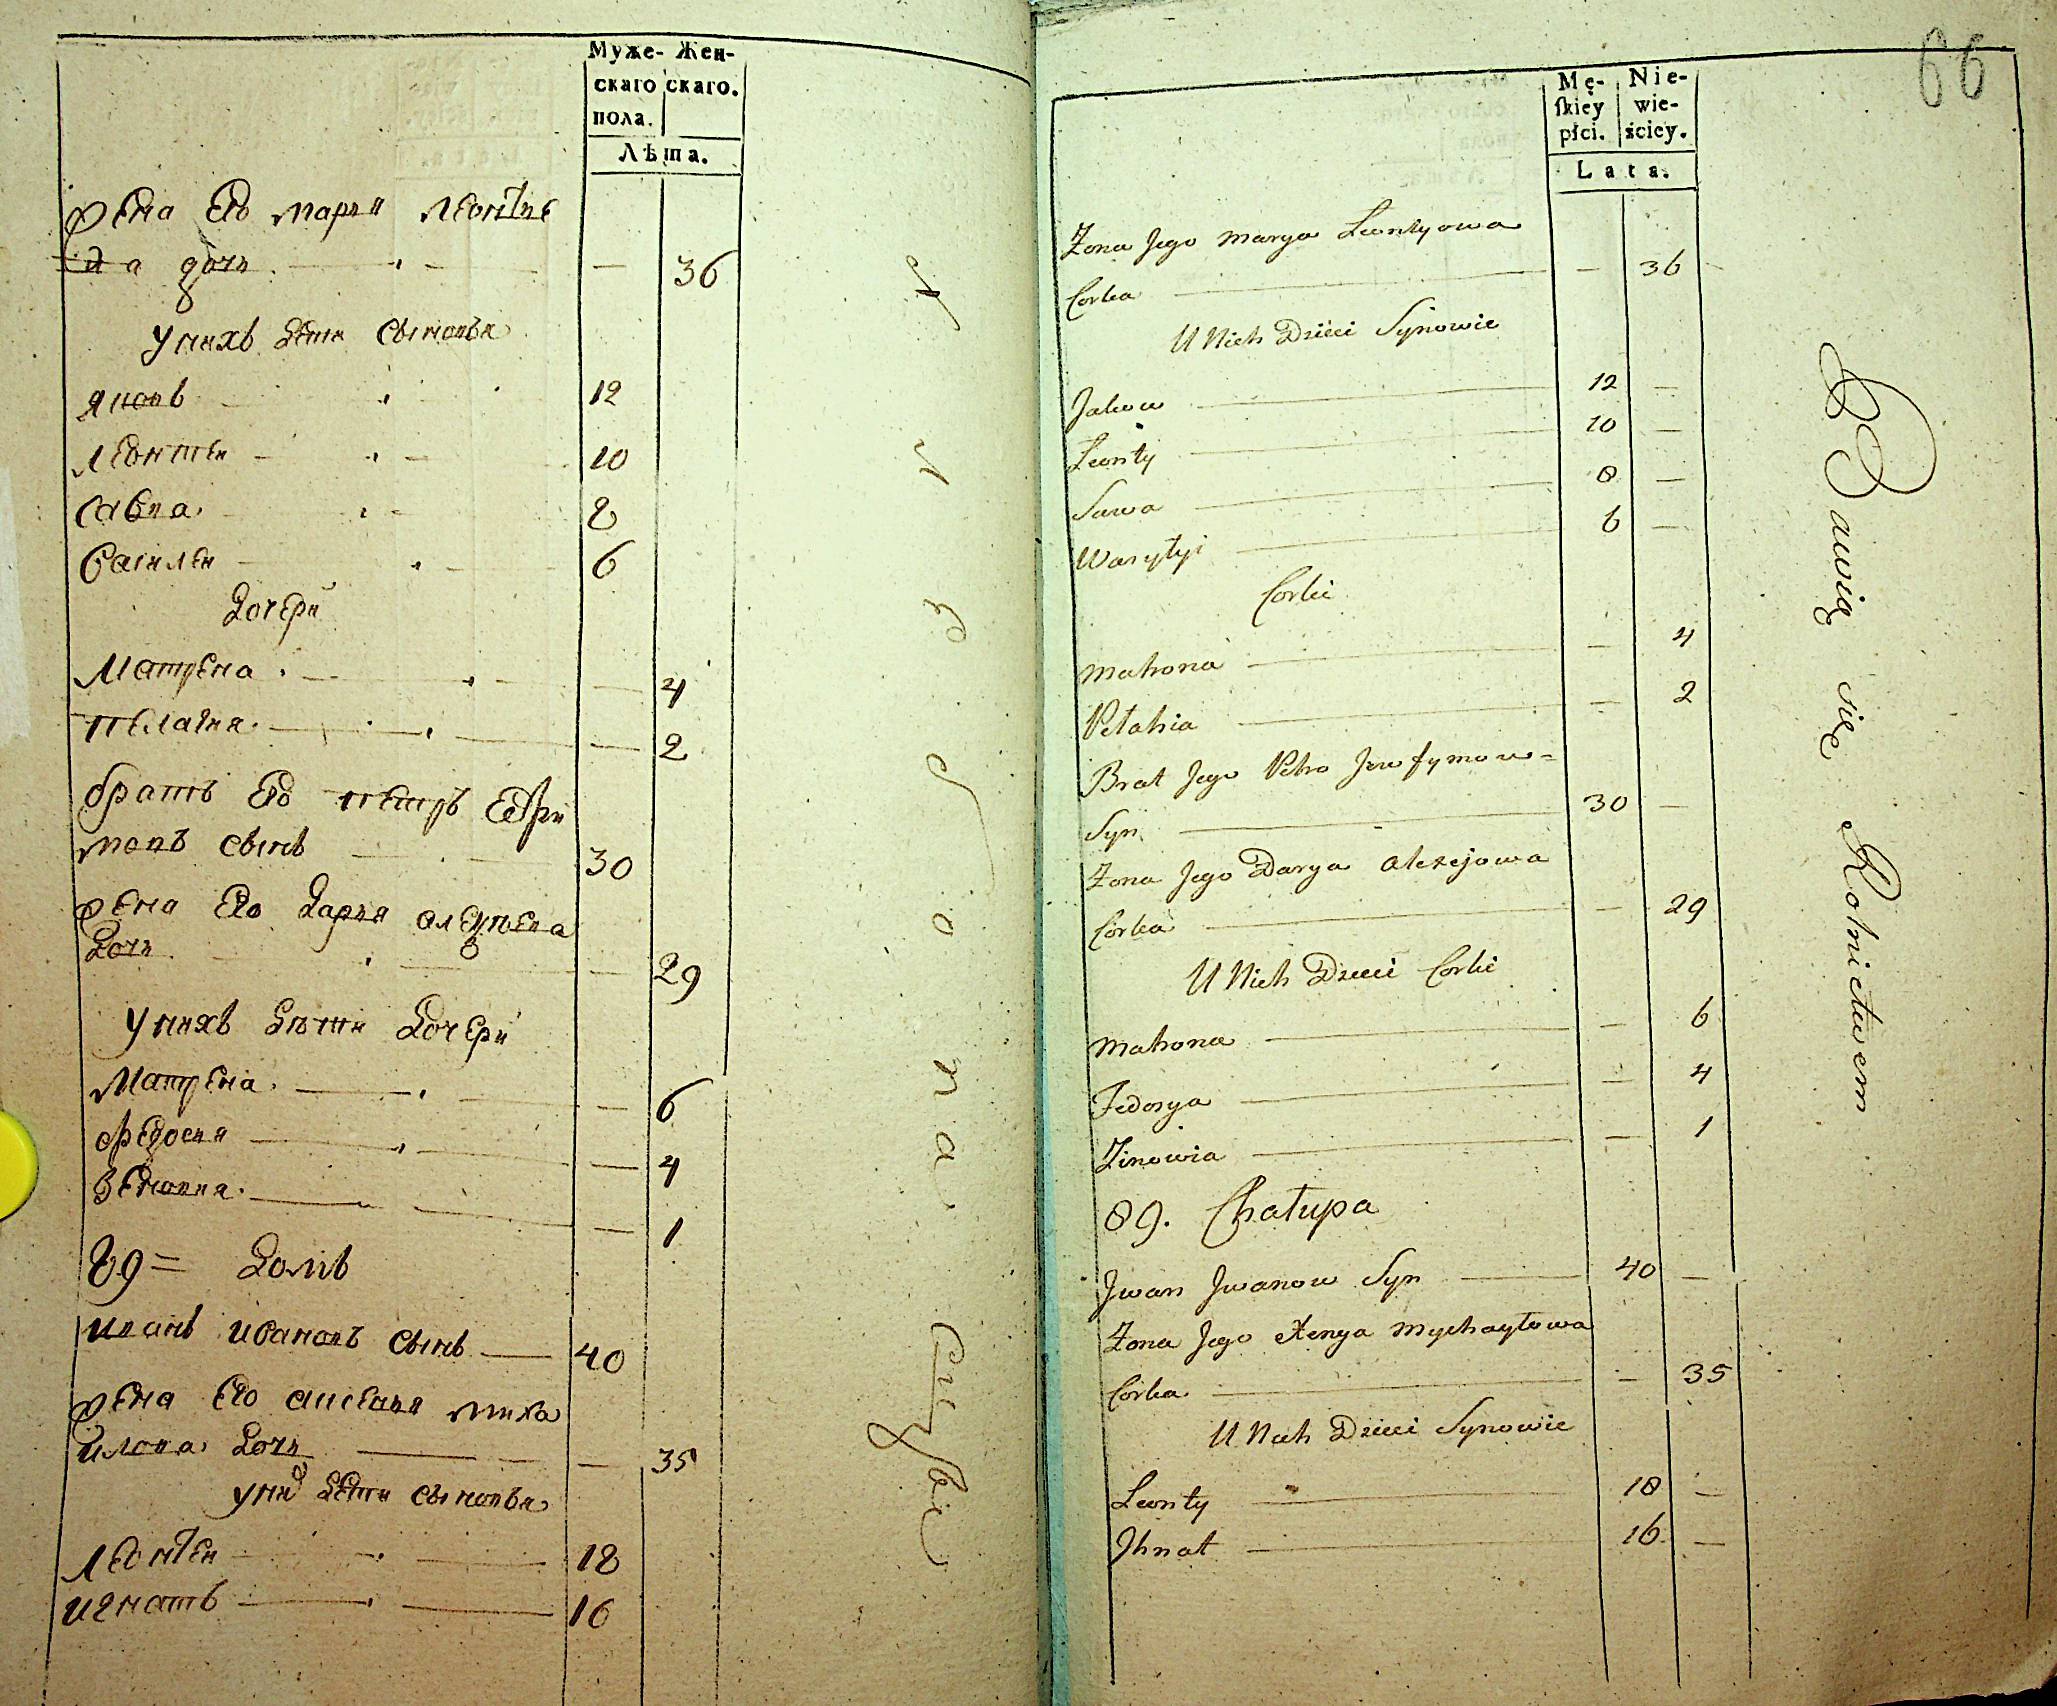 Муже- Жен-
скаго скаго.
пола.
Лѣта.
жена Его марья леонтие
ва дочь — 36
У нихъ дети сыновья
яковъ — 12
леонтеи — 10
савка — 8
василеи — 6
дочери
Матрена — 4
пелагия — 2
братъ Его петръ Ефи
мовъ сынъ — 30
жена Его дарья алеѯѣева
дочь — 29
У нихъ дѣти дочери
Матрена — 6
федосия — 4
Зеновия — 1
89 = домъ
иванъ ивановъ сынъ — 40
жена Его аксенья миха
илова дочь — 35
У них дети сыновья
леонтеи — 18
игнатъ — 16
66
Mę- Nie-
skiey wie-
płci. ściey.
Lata.
Żona Jego Marya Leontyowa
Corka — 36
U Nich Dzieci Synowie
Jakow — 12 —
Leonty — 10 —
Sawa — 8 —
Wasylyi — 6 —
Corki
Matrona — 4
Pelahia — 2
Brat Jego Petro Jewfymow=
Syn — 30 —
Żona Jego Darya Alexejowa
Corka — 29
U Nich Dzieci Corki
Matrona — 6
Fedosya — 4
Zinowia — 1
89. Chałupa
Jwan Jwanow Syn — 40 —
Żona Jego Xenya Mychayłowa
Corka — 35
U Nich Dzieci Synowie
Leonty — 18 —
Jhnat — 16 —
Bawią się Rolnictwem